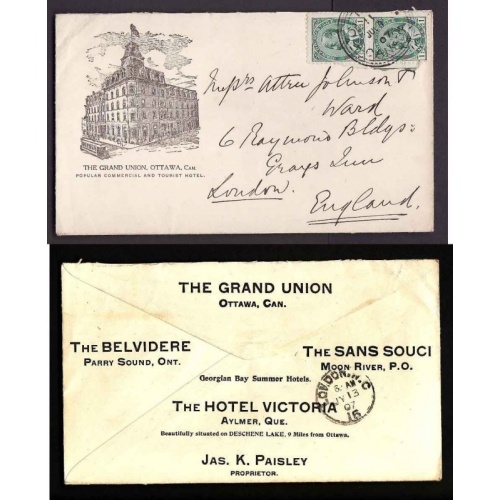 THE GRAND UNION, OTTAWA, CAN.
POPULAR COMMERCIAL AND TOURIST HOTEL.
Messrs Attree Johnson &
Ward
6 Raymond Bldgs:
Grays Inn
London.
England.
THE GRAND UNION
OTTAWA, CAN.
THE BELVIDERE
PARRY SOUND, ONT.
THE SANS SOUCI
MOON RIVER, P.O.
Georgian Bay Summer Hotels.
THE HOTEL VICTORIA
AYLMER, QUE.
Beautifully situated on DESCHENE LAKE, 9 Miles from Ottawa.
LONDON, W.C
JY 13
07
15
JAS. K. PAISLEY
PROPRIETOR.